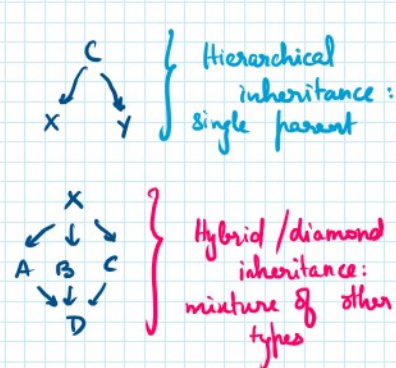 C
X Y
Hierarchical
inheritance :
single parent
X
A B C
D
Hybrid / diamond
inheritance:
mixture of other
types